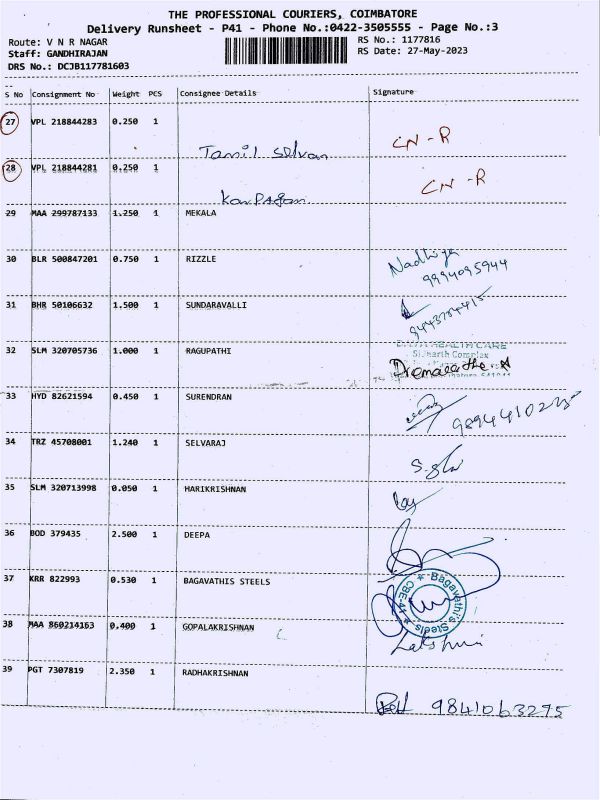 THE PROFESSIONAL COURIERS, COIMBATORE
Delivery Runsheet - P41 - Phone No.:0422-3505555 - Page No.:3
Route: V N R NAGAR
RS No.: 1177816
Staff: GANDHIRAJAN
RS Date: 27-May-2023
DRS No.: DCJB117781603
S No Consignment No Weight PCS Consignee Details Signature
27 VPL 218844283 0.250 1
Tamil Selvan CN-R
28 VPL 218844281 0.250 1
Karpagam CN-R
29 MAA 299787133 1.250 1 MEKALA
30 BLR 500847201 0.750 1 RIZZLE
Nadhiya
9994095944
31 BHR 50106632 1.500 1 SUNDARAVALLI
32 SLM 320705736 1.000 1 RAGUPATHI
HEALTH CARE
Sidharth Complex
33 HYD 82621594 0.450 1 SURENDRAN
34 TRZ 45708001 1.240 1 SELVARAJ
35 SLM 320713998 0.050 1 HARIKRISHNAN
36 BOD 379435 2.500 1 DEEPA
37 KRR 822993 0.530 1 BAGAVATHIS STEELS
Bagavathi's Steels
CBE-41
38 MAA 860214163 0.400 1 GOPALAKRISHNAN
Lakshmi
39 PGT 7307819 2.350 1 RADHAKRISHNAN
9841063295